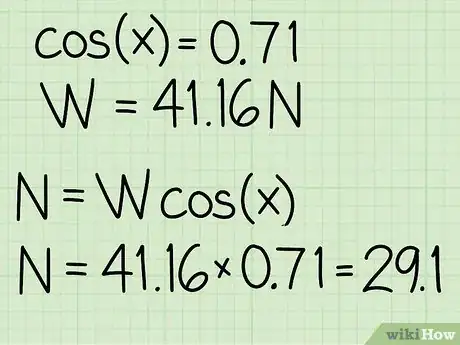 cos(x) = 0.71
W = 41.16 N
N = W cos(x)
N = 41.16 × 0.71 = 29.1
wikiHow